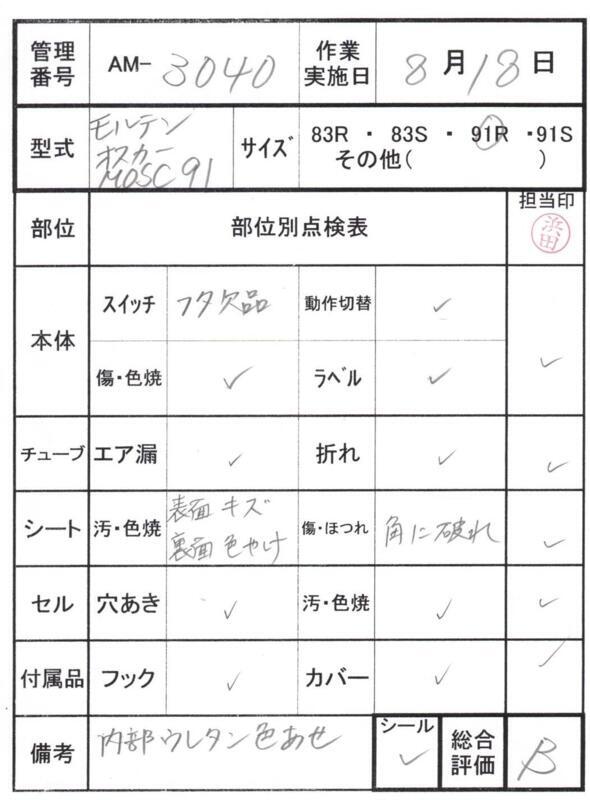 管理番号 AM- 3040 作業実施日 8月18日
型式 モルテン オスカー MOSC 91 サイズ 83R ・ 83S ・ 91R ・91S
その他( )
部位 部位別点検表 担当印 浜田
本体 スイッチ フタ欠品 動作切替 ✓
傷・色焼 ✓ ラベル ✓ ✓
チューブ エア漏 ✓ 折れ ✓ ✓
シート 汚・色焼 表面 キズ 裏面 色やけ 傷・ほつれ 角に破れ ✓
セル 穴あき ✓ 汚・色焼 ✓ ✓
付属品 フック ✓ カバー ✓ ✓
備考 内部ウレタン色あせ シール ✓ 総合評価 B